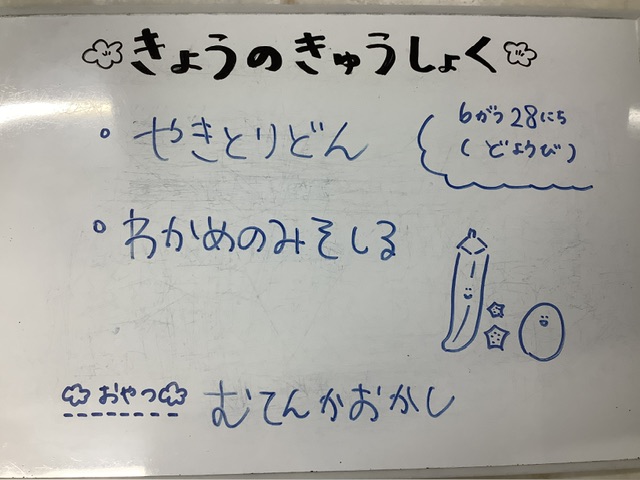 きょうのきゅうしょく
6がつ28にち
(どようび)
・やきとりどん
・わかめのみそしる
おやつ
むてんかおかし